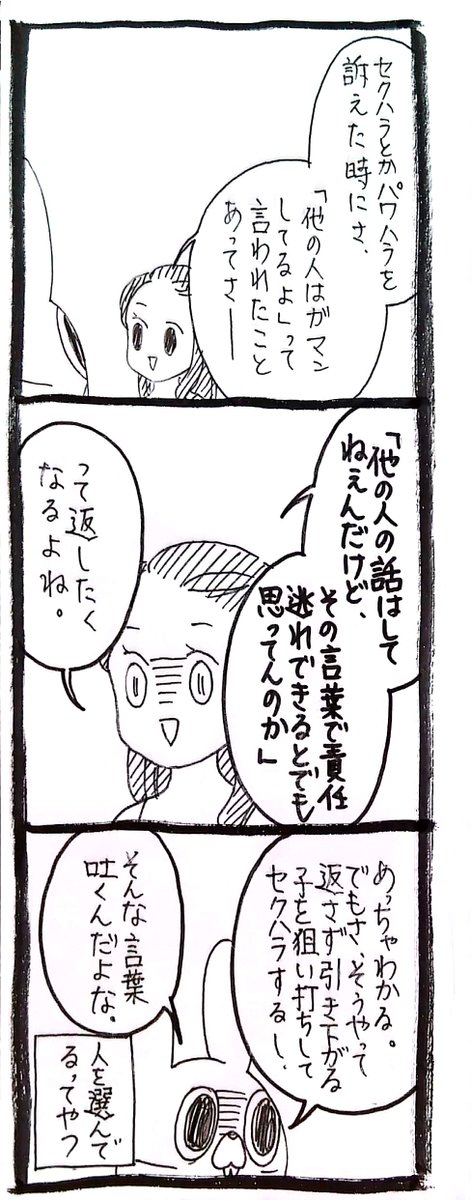 セクハラとかパワハラを
訴えた時にさ、
「他の人はガマン
してるよ」って
言われたこと
あってさー
「他の人の話はして
ねぇんだけど、
その言葉で責任
逃れできるとでも
思ってんのか」
って返したく
なるよね。
めっちゃわかる。
でもさ、そうやって
返さず引き下がる
子を狙い打ちして
セクハラするし、
そんな言葉
吐くんだよな。
人を選んで
るってやつ